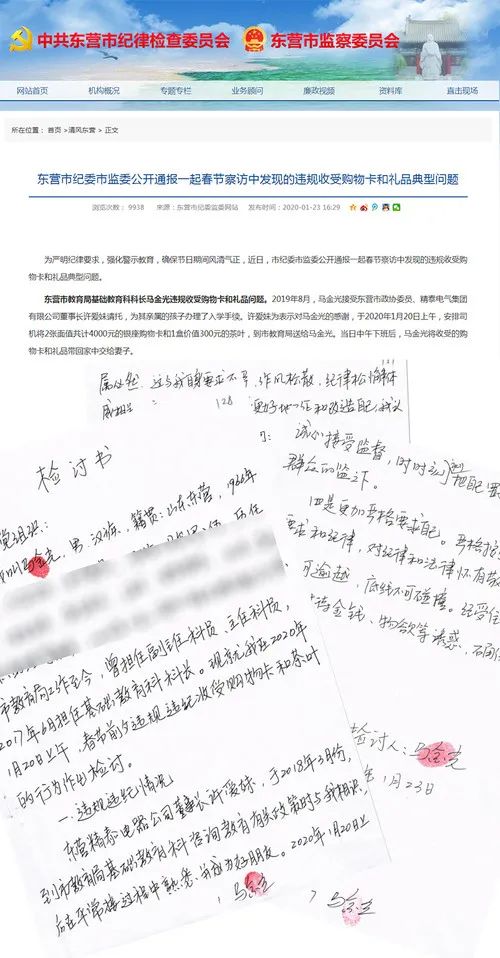 中共东营市纪律检查委员会 东营市监察委员会
网站首页 机构概况 专题专栏 业务顾问 廉政视频 资料库 直击现场
所在位置： 首页 >清风东营 > 正文
东营市纪委市监委公开通报一起春节察访中发现的违规收受购物卡和礼品典型问题
浏览次数： 9938 来源：东营市纪委监委网站 发布时间：2020-01-23 16:29
为严明纪律要求，强化警示教育，确保节日期间风清气正，近日，市纪委市监委公开通报一起春节察访中发现的违规收受购
物卡和礼品典型问题。
东营市教育局基础教育科科长马金光违规收受购物卡和礼品问题。2019年8月，马金光接受东营市政协委员、精泰电气集团
有限公司董事长许爱妹请托，为其亲属的孩子办理了入学手续。许爱妹为表示对马金光的感谢，于2020年1月20日上午，安排司
机将2张面值共计4000元的银座购物卡和1盒价值300元的茶叶，到市教育局送给马金光。当日中午下班后，马金光将收受的购
物卡和礼品带回家中交给妻子。
这与我自身要求不严，作风松散，纪律松懈
检讨书
党组织：
马金光，男，汉族，籍贯：山东东营，1966年
市教育局工作至今，曾担任副主任科员、主任科员，
2017年6月担任基础教育科科长。现就我在2020年
1月20日上午，春节前夕违规违纪收受购物卡和茶叶
的行为作出检讨。
一、违规违纪情况
东营精泰电器公司董事长许爱妹，于2018年3月份，
到市教育局基础教育科咨询教育有关政策时与我相识，
后在平常接过程中熟悉，并成为好朋友。2020年1月20日上
马金光
诚心接受监督，时时
群众的监
四是更加严格要求自己。严格
要求和纪律，对纪律和法律怀有敬
可逾越，底线不可碰撞。经受住
金钱、物欲等诱惑，
检讨人：马金光
年1月23日
马金光